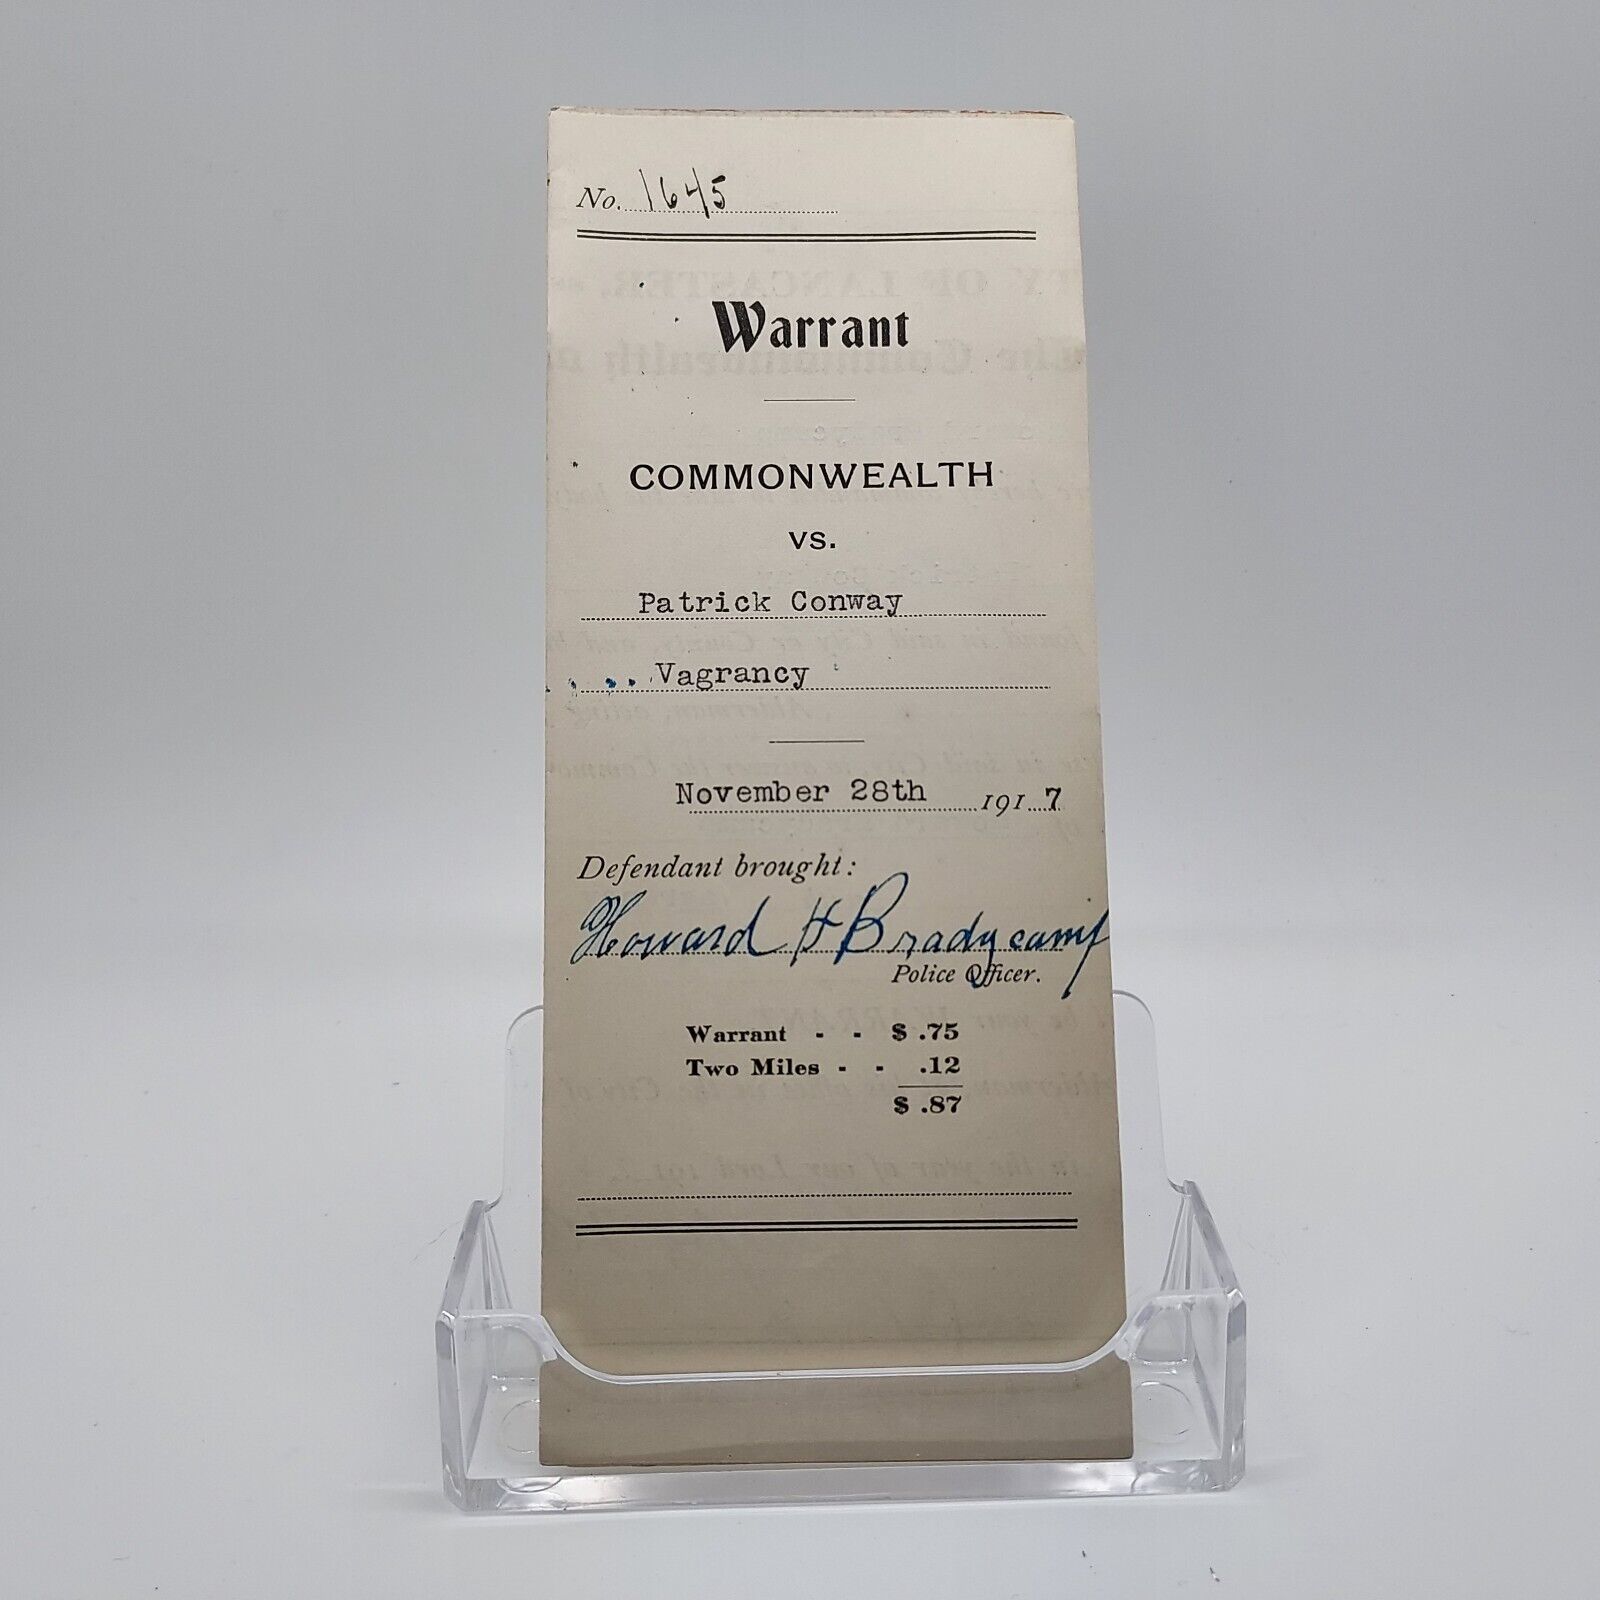 No. 1645
Warrant
COMMONWEALTH
vs.
Patrick Conway
Vagrancy
November 28th 1917
Defendant brought:
Howard H Bradycamp
Police Officer.
Warrant - - $ .75
Two Miles - - .12
$ .87